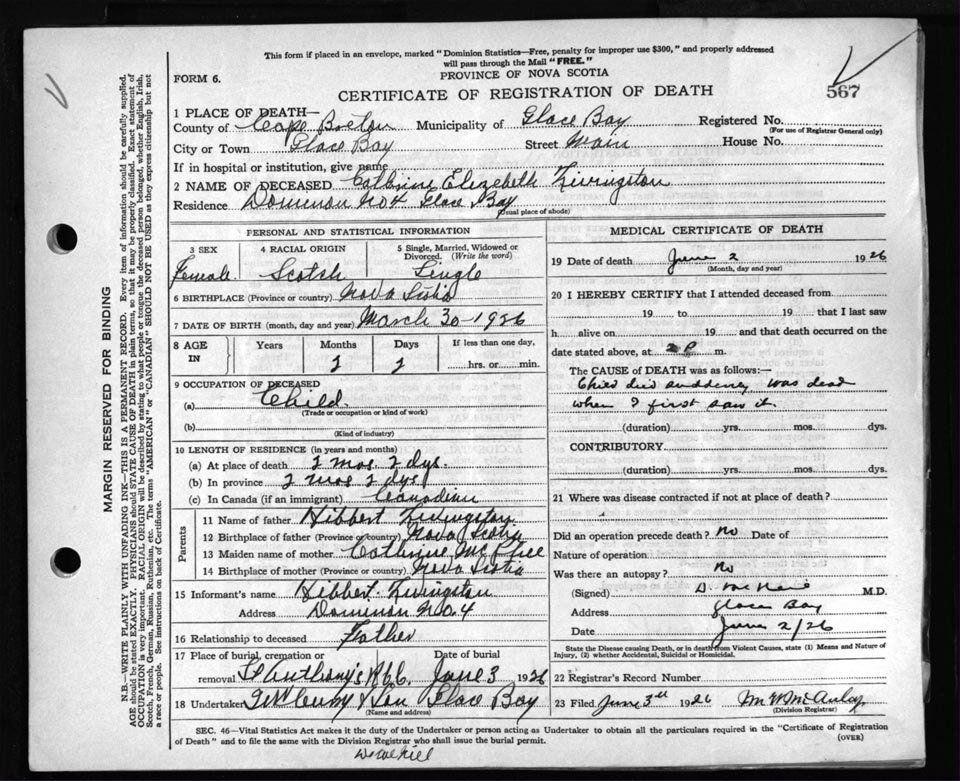 This form if placed in an envelope, marked "Dominion Statistics—Free, penalty for improper use $300," and properly addressed
will pass through the Mail "FREE."
FORM 6.
PROVINCE OF NOVA SCOTIA
CERTIFICATE OF REGISTRATION OF DEATH
567
1 PLACE OF DEATH—
County of Cape Breton Municipality of Glace Bay Registered No.
(For use of Registrar General only)
City or Town Glace Bay Street Main House No.
If in hospital or institution, give name
2 NAME OF DECEASED Catherine Elizebeth Livingston
Residence Dominion No 4 Glace Bay
(Usual place of abode)
PERSONAL AND STATISTICAL INFORMATION
3 SEX 4 RACIAL ORIGIN 5 Single, Married, Widowed or Divorced. (Write the word)
Female Scotch Single
6 BIRTHPLACE (Province or country) Nova Scotia
7 DATE OF BIRTH (month, day and year) March 30-1926
8 AGE IN Years Months Days If less than one day,
2 2 hrs. or min.
9 OCCUPATION OF DECEASED
(a) Child
(Trade or occupation or kind of work)
(b)
(Kind of industry)
10 LENGTH OF RESIDENCE (in years and months)
(a) At place of death 2 mos. 2 dys.
(b) In province 2 mos 2 dys
(c) In Canada (if an immigrant) Canadian
Parents
11 Name of father Hibbert Livingston
12 Birthplace of father (Province or country) Nova Scotia
13 Maiden name of mother Catherine McPhee
14 Birthplace of mother (Province or country) Nova Scotia
15 Informant's name Hibbert Livingston
Address Dominion No. 4
16 Relationship to deceased Father
17 Place of burial, cremation or removal Date of burial
St Anthony's June 3 1926
18 Undertaker & Son Glace Bay
(Name and address)
MEDICAL CERTIFICATE OF DEATH
19 Date of death June 2 1926
(Month, day and year)
20 I HEREBY CERTIFY that I attended deceased from
19 to 19 that I last saw
h alive on 19 and that death occurred on
date stated above, at 2 P m.
The CAUSE of DEATH was as follows:—
Child died suddenly was dead
when I first saw it.
(duration) yrs. mos. dys.
CONTRIBUTORY
(duration) yrs. mos. dys.
21 Where was disease contracted if not at place of death?
Did an operation precede death? No Date of
Nature of operation
Was there an autopsy? No
(Signed) M.D.
Address Glace Bay
Date June 2/26
State the Disease causing Death, or in death from Violent Causes, state (1) Means and Nature of
Injury, (2) whether Accidental, Suicidal or Homicidal.
22 Registrar's Record Number
23 Filed June 3rd 1926 M W McAulay
(Division Registrar)
SEC. 46—Vital Statistics Act makes it the duty of the Undertaker or person acting as Undertaker to obtain all the particulars required in the "Certificate of Registration
of Death" and to file the same with the Division Registrar who shall issue the burial permit.
(OVER)
MARGIN RESERVED FOR BINDING
N.B.—WRITE PLAINLY WITH UNFADING INK—THIS IS A PERMANENT RECORD. Every item of information should be carefully supplied.
AGE should be stated EXACTLY. PHYSICIANS should STATE CAUSE OF DEATH in plain terms, so that it may be properly classified. Exact statement of
OCCUPATION is very important. RACIAL ORIGIN will be described by stating to what people or tongue the deceased person belonged, whether English, Irish,
Scotch, French, German, Russian, Ruthenian, etc. The terms "AMERICAN" or "CANADIAN" SHOULD NOT BE USED as they express citizenship but not
a race or people. See instructions on back of Certificate.